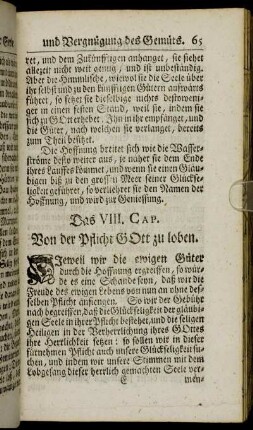 und Vergnügung des Gemüts. 65
ret, und dem Zukünfftigen anhanget, sie siehet
allezeit nicht weit genug, und ist unbeständig.
Aber die Himmlische, wiewol sie die Seele über
ihr selbst und zu den künfftigen Gütern aufwärts
führet, so setzet sie dieselbige nichts destoweni-
ger in einen festen Stand, weil sie, indem sie
sich zu GOtt erhebet, Ihn in ihr empfänget, und
die Güter, nach welchen sie verlanget, bereits
zum Theil besitzet.
Die Hoffnung breitet sich wie die Wasser-
ströme desto weiter aus, je näher sie dem Ende
ihres Lauffes kommet, und wenn sie einen Gläu-
bigen biß zu den grossen Meer seiner Glückse-
ligkeit geführet, so verliehret sie den Namen der
Hoffnung, und wird zur Geniessung.
Das VIII. CAP.
Von der Pflicht GOtt zu loben.
Jeweil wir die ewigen Güter
durch die Hoffnung ergreiffen, so wür-
de es eine Schande seyn, daß wir die
Freude des ewigen Lebens von nun an ohne des-
selben Pflicht anfiengen. So wir der Gebühr
nach begreiffen, daß die Glückseligkeit der gläubi-
gen Seele in ihrer Pflicht bestehet, und die seligen
Heiligen in der Verherrlichung ihres GOttes
ihre Herrlichkeit setzen: so sollen wir in dieser
fürnehmen Pflicht auch unsere Glückseligkeit su-
chen, und indem wir unsere Stimmen mit dem
Lobgesang dieser herrlich gemachten Seele ver-
E men-